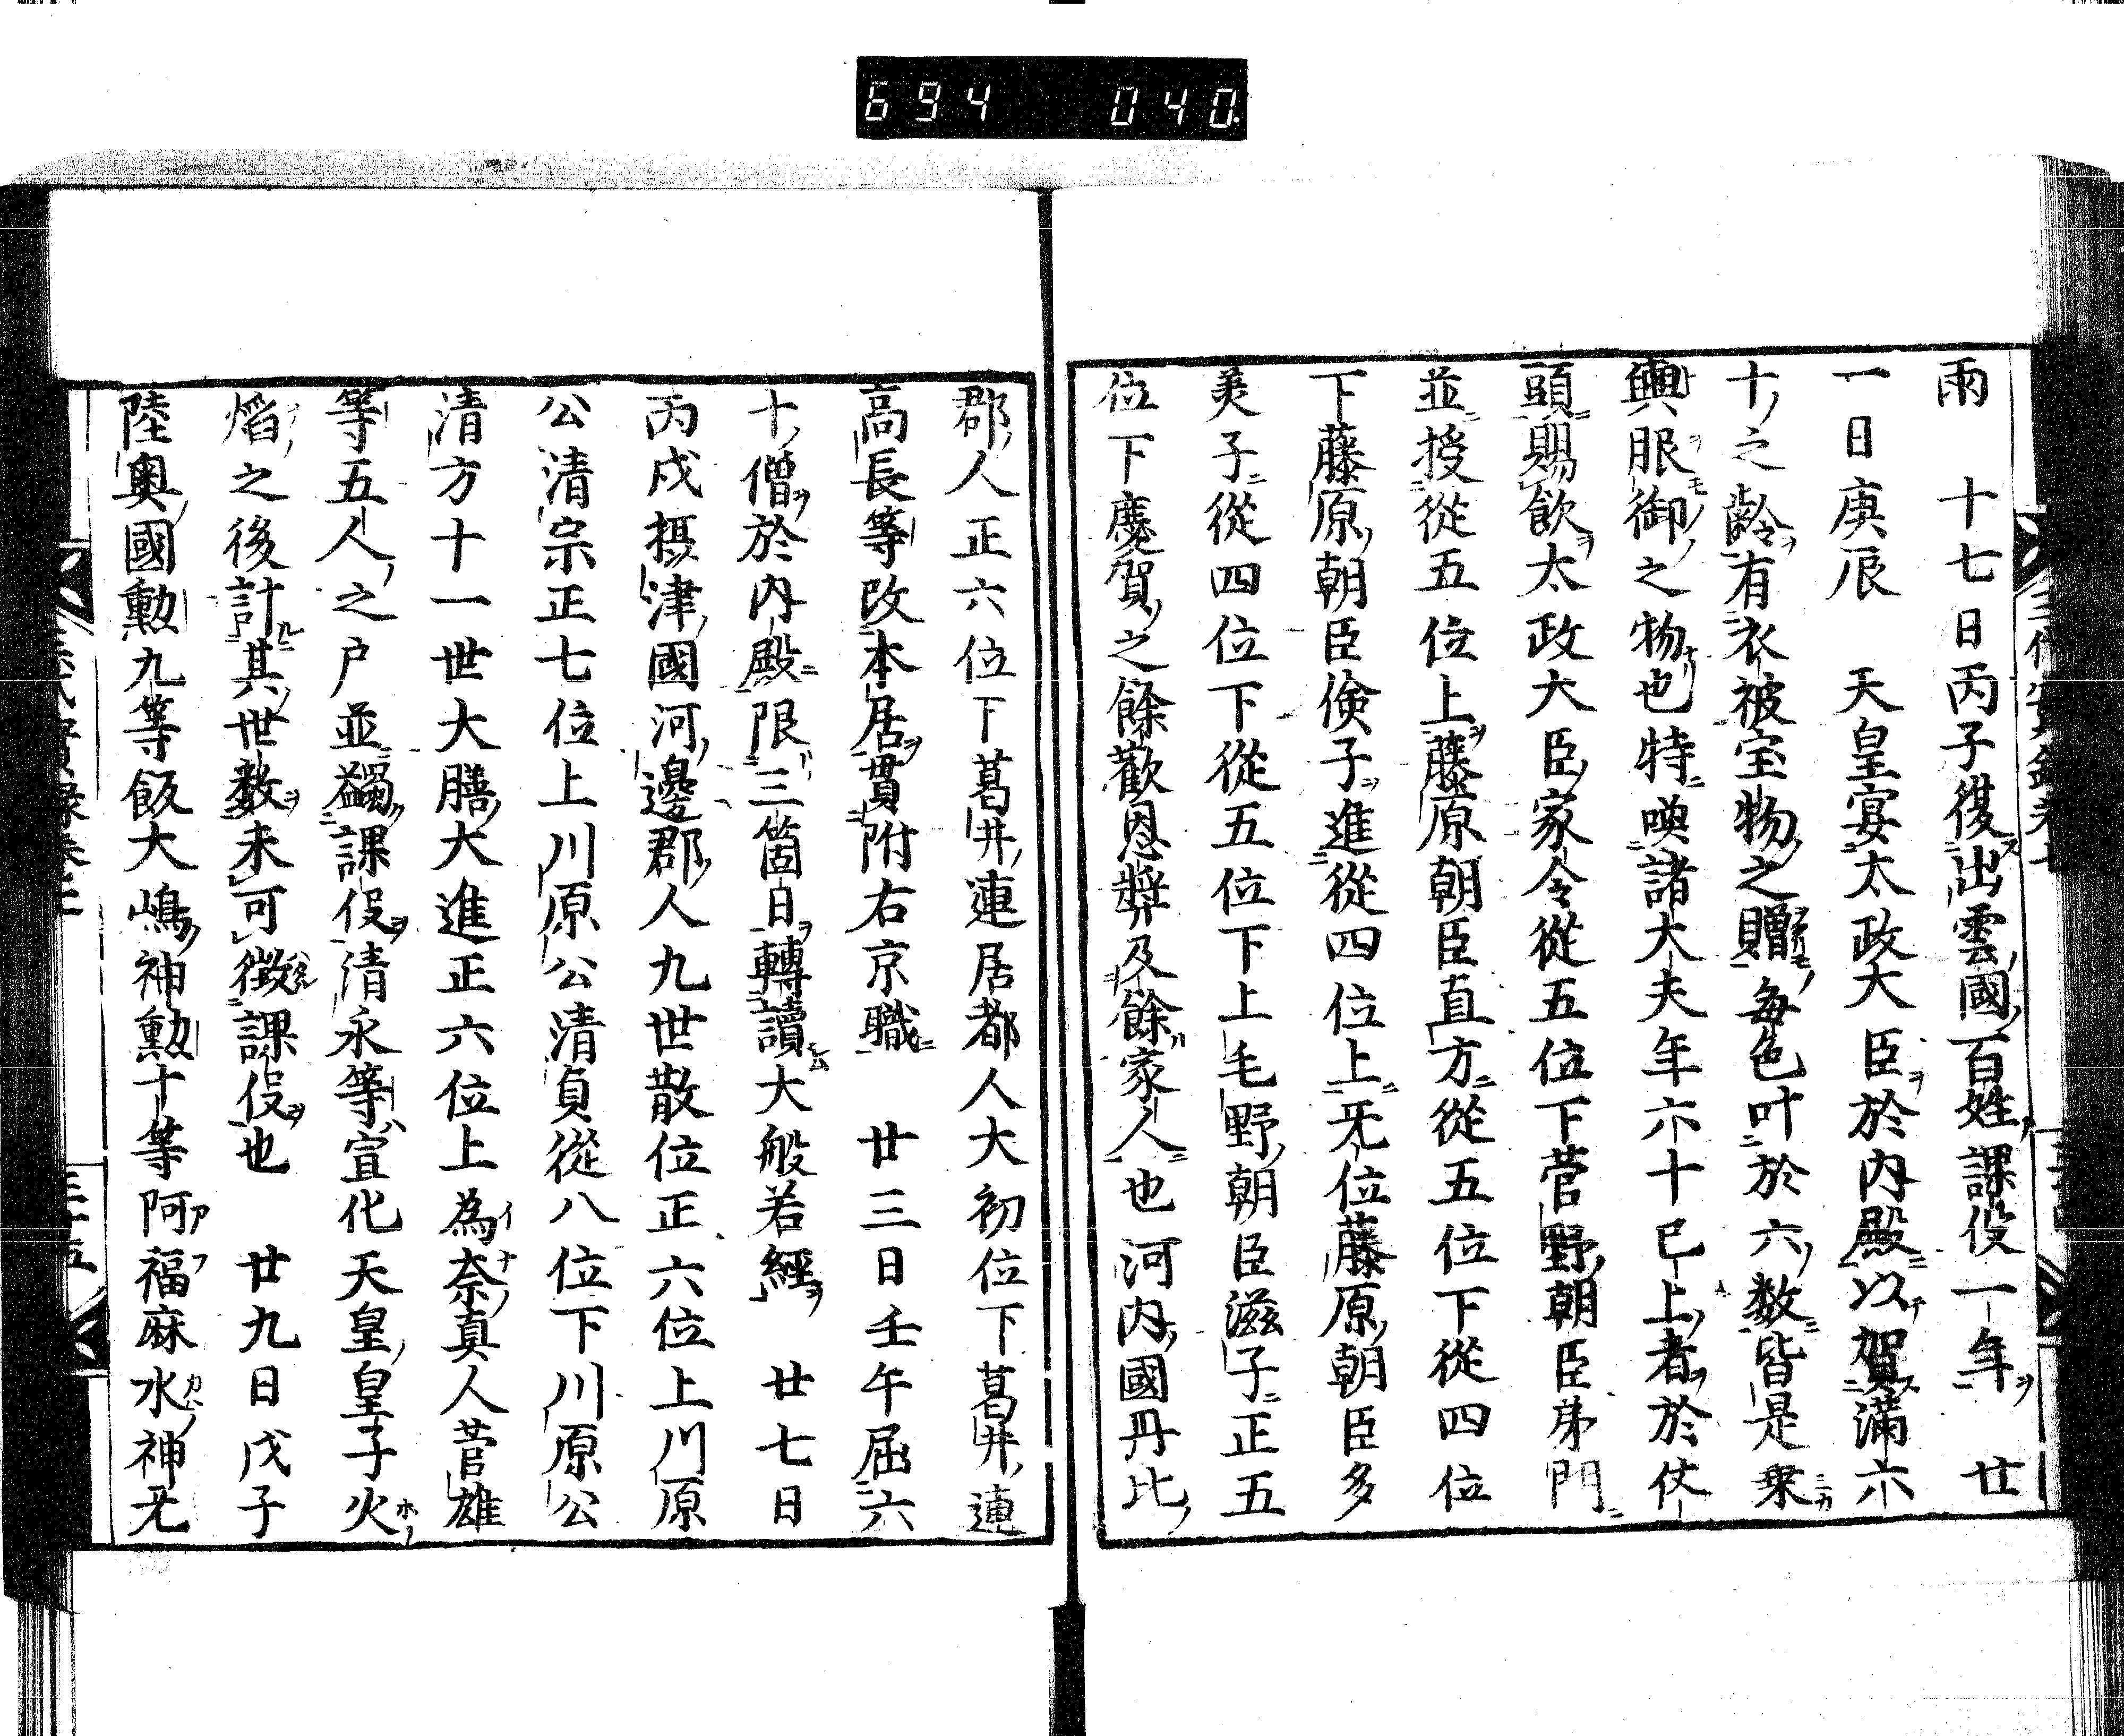 694 040
雨　十七日丙子復出雲國百姓課役一年　廿
一日庚辰　天皇宴太政大臣於内殿以賀滿六
十之齡有衣被宝物之贈毎色叶於六数皆是乗
輿服御之物也特喚諸大夫年六十已上者於仗
頭賜飲太政大臣家令從五位下菅野朝臣弟門
並授從五位上藤原朝臣直方從五位下從四位
下藤原朝臣儉子進從四位上无位藤原朝臣多
美子從四位下從五位下上毛野朝臣滋子正五
位下慶賀之餘歡恩奬及餘家人也河内國丹比
郡人正六位下葛井連居都人大初位下葛井連
高長等改本居貫附右京職　廿三日壬午屈六
十僧於内殿限三箇日轉讀大般若經　廿七日
丙戌摂津國河邊郡人九世散位正六位上川原
公清宗正七位上川原公清貞從八位下川原公
清方十一世大膳大進正六位上為奈真人菅雄
等五人之戸並蠲課役清永等宣化天皇皇子火
焰之後計其世数未可徴課役也　廿九日戊子
陸奥國勳九等飯大嶋神勳十等阿福麻水神无